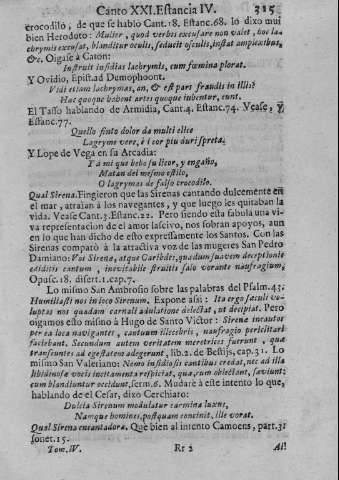 Canto XXI. Estancia IV. 315
crocodilo, de que se habló Cant.18. Estanc.68. lo dixo mui
bien Herodoto: Mulier, quod verbis excusare non valet, hoc la-
chrymis excusat, blanditur oculis, seducit osculis, instat amplexibus,
&c. Oigase à Caton:
Instruit insidias lachrymis, cum fœmina plorat.
Y Ovidio, Epist.ad Demophoont.
Vidi etiam lachrymas, an, & est pars fraudis in illis?
Hac quoque habent artes quaque iubentur, eunt.
El Tasso hablando de Armidia, Cant.4. Estanc.74. Vease, y
Estanc.77.
Quello finto dolor da multi elice
Lagryme vere, è i cor piu duri spreta.
Y Lope de Vega en su Arcadia:
Y a mi que bebo su licor, y engaño,
Matan del mesmo estilo,
O lagrymas de falso crocodilo.
Qual Sirena. Fingieron que las Sirenas cantando dulcemente en
el mar, atraian à los navegantes, y que luego les quitaban la
vida. Vease Cant.3.Estanc.22. Pero siendo esta fabula una vi-
va representacion de el amor lascivo, nos sobran apoyos, aun
en lo que han dicho de esto expressamente los Santos. Con las
Sirenas comparò à la atractiva voz de las mugeres San Pedro
Damiano: Voi Sirenæ, atque Caribdes, quædum suavem deceptionis
editis cantum, inevitabile struitis salo vorante naufragium,
Opusc.18. disert.1.cap.7.
Lo mismo San Ambrosio sobre las palabras del Psalm.43.
Humiliasti nos in loco Sirenum. Expone assi: Ita ergo sæculi vo-
luptas nos quadam carnali adulatione delectat, ut decipiat. Pero
oigamos esto mismo à Hugo de Santo Victor: Sirenæ incautos
per ea loca navigantes, cantuum illecebris, naufragio periclitari
faciebant. Secundum autem veritatem meretrices fuerunt, quæ
transeuntes ad egestatem adegerunt, lib.2. de Bestijs, cap.31. Lo
mismo San Valeriano: Nemo insidiosis cantibus credat, nec ad illa
libidinosæ vocis incitamenta respiciat, quæ, cum oblectant, sæviunt;
cum blandiuntur occidunt, serm.6. Mudarè à este intento lo que,
hablando de el Cesar, dixo Cerchiaro:
Dulcia Sirenum modulatur carmina luxus,
Namque homines, postquam concinit, ille vorat.
Qual Sirena encantadora. Que bien al intento Camoens, part.3.
sonet.15.
Tom.IV. Rr 2 Al!